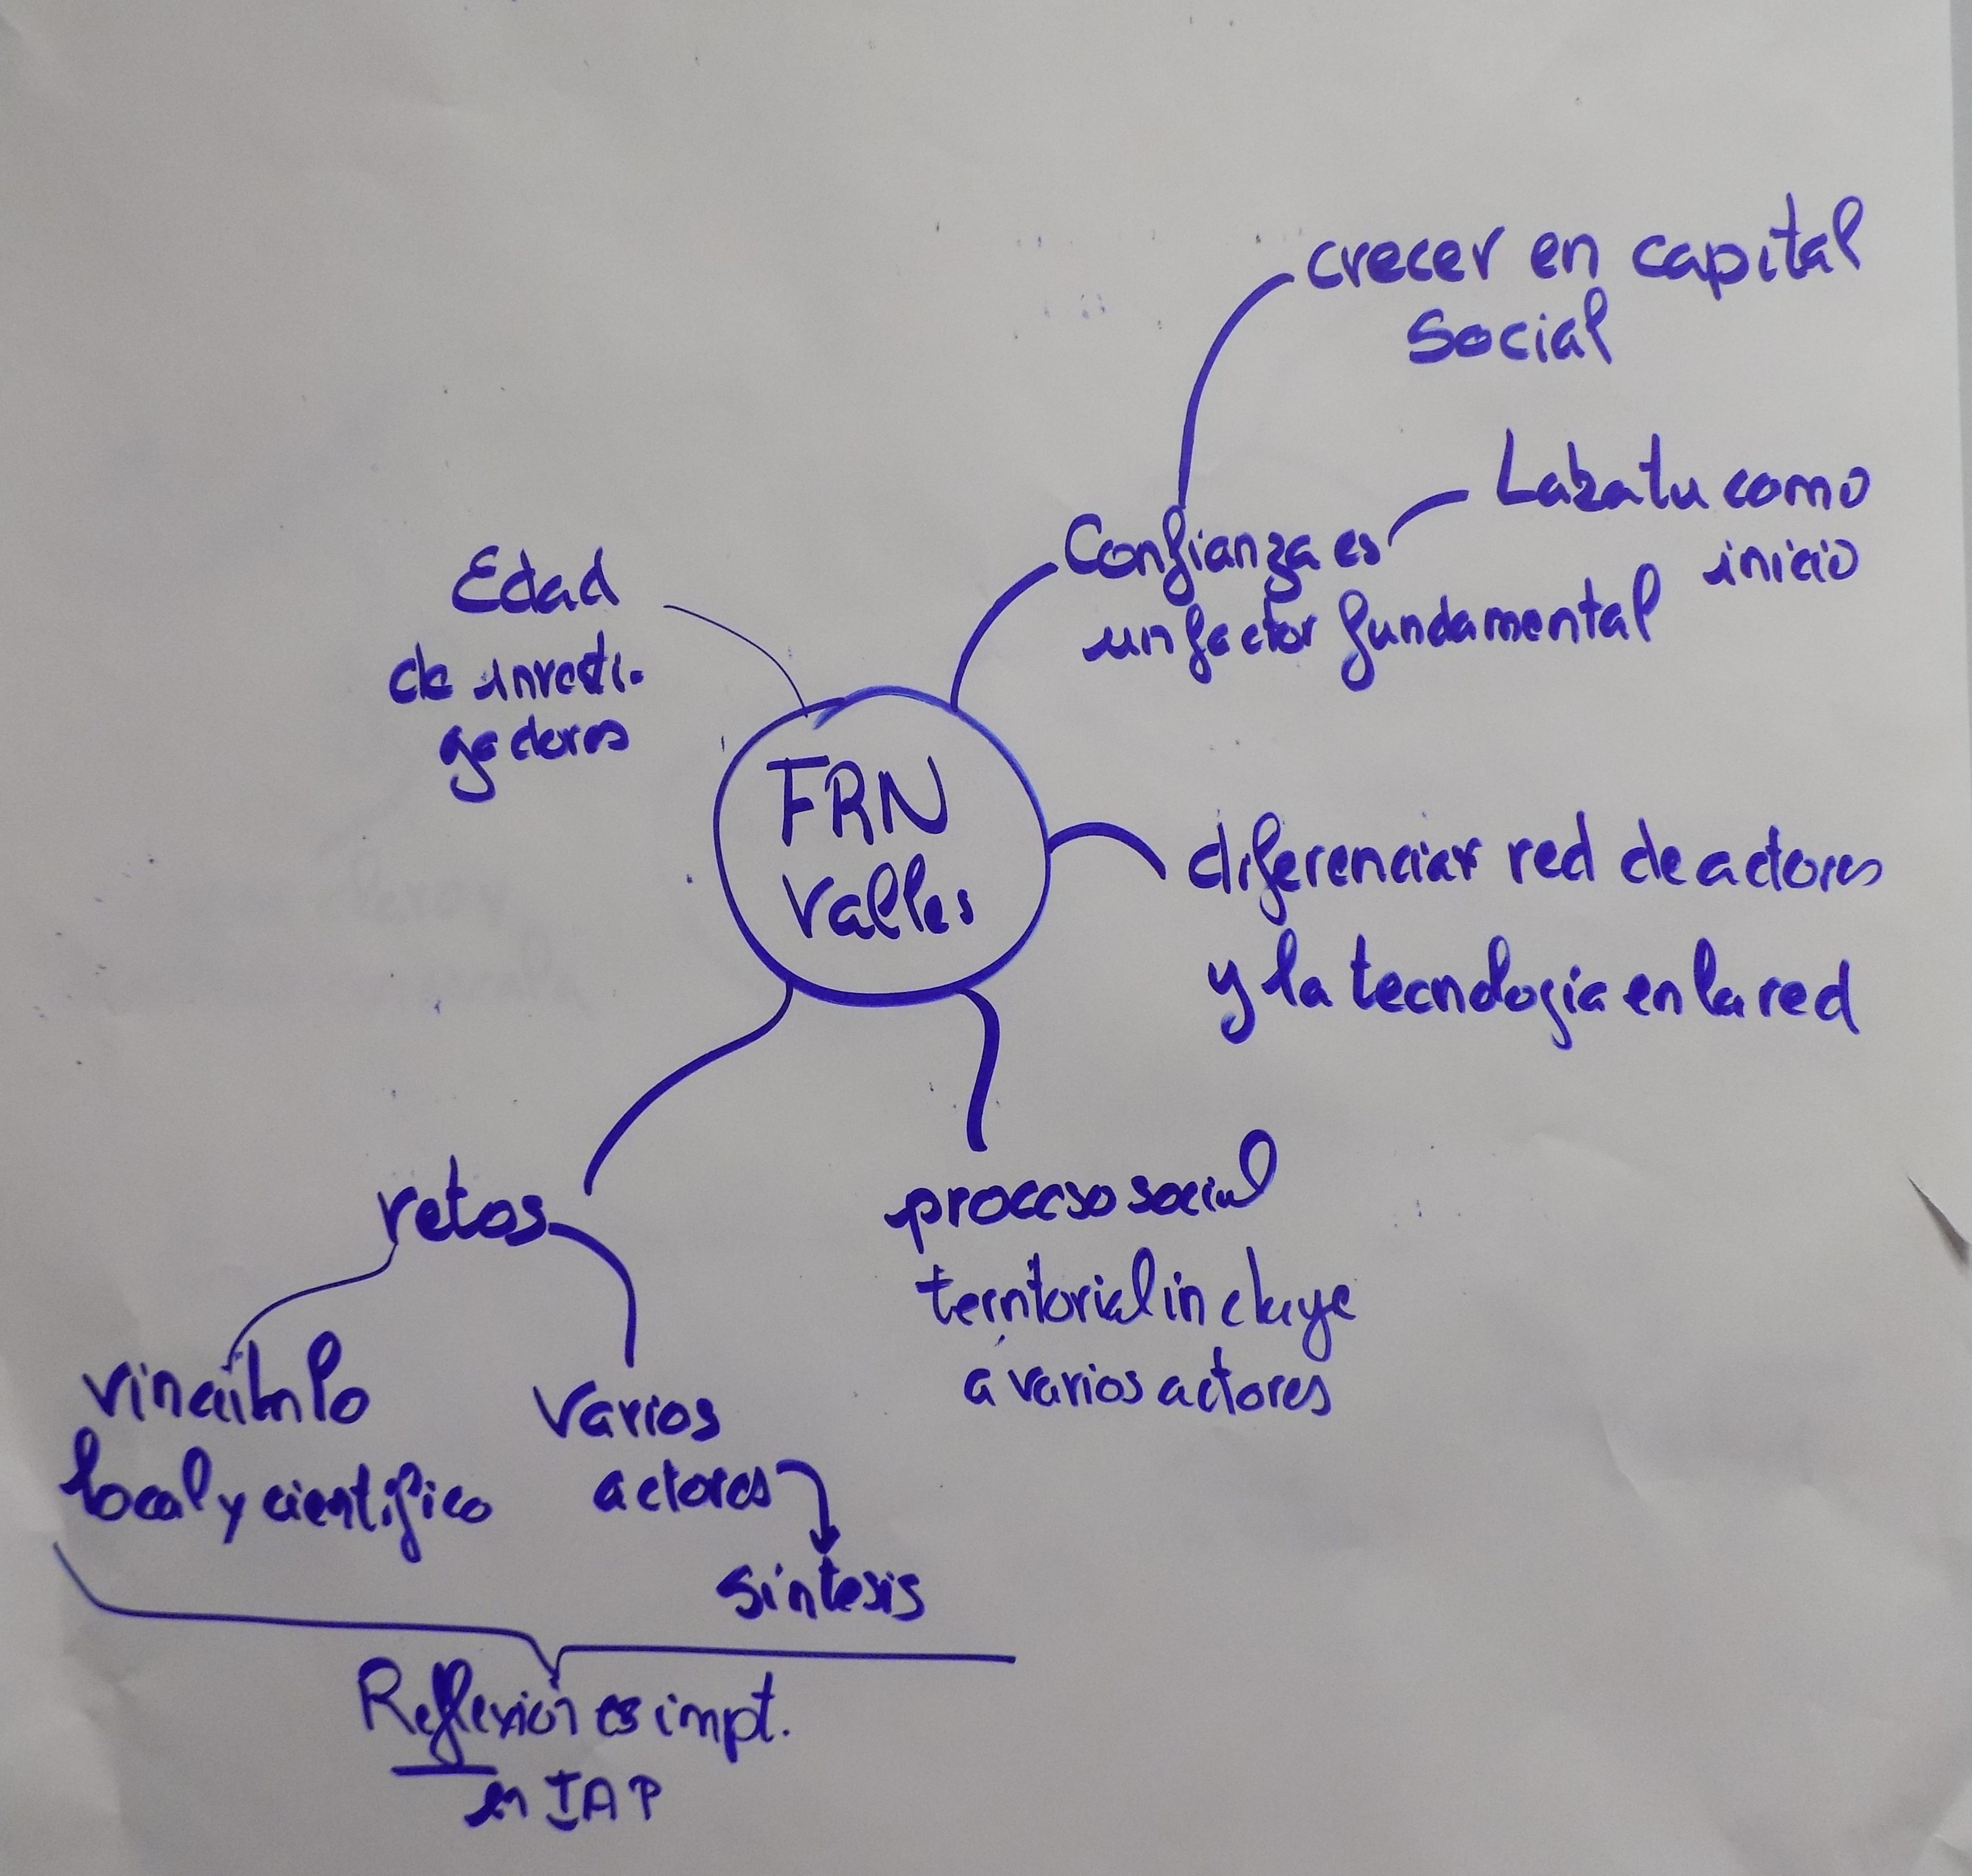 crecer en capital
social
Confianza es
un factor fundamental
como
inicio
Edad
de investi-
gadores
FRN
Valles
diferenciar red de actores
y la tecnología en la red
retos
vincúlulo
local y científico
varios
actores
síntesis
proceso social
territorial incluye
a varios actores
Reflexión es impt.
en IAP